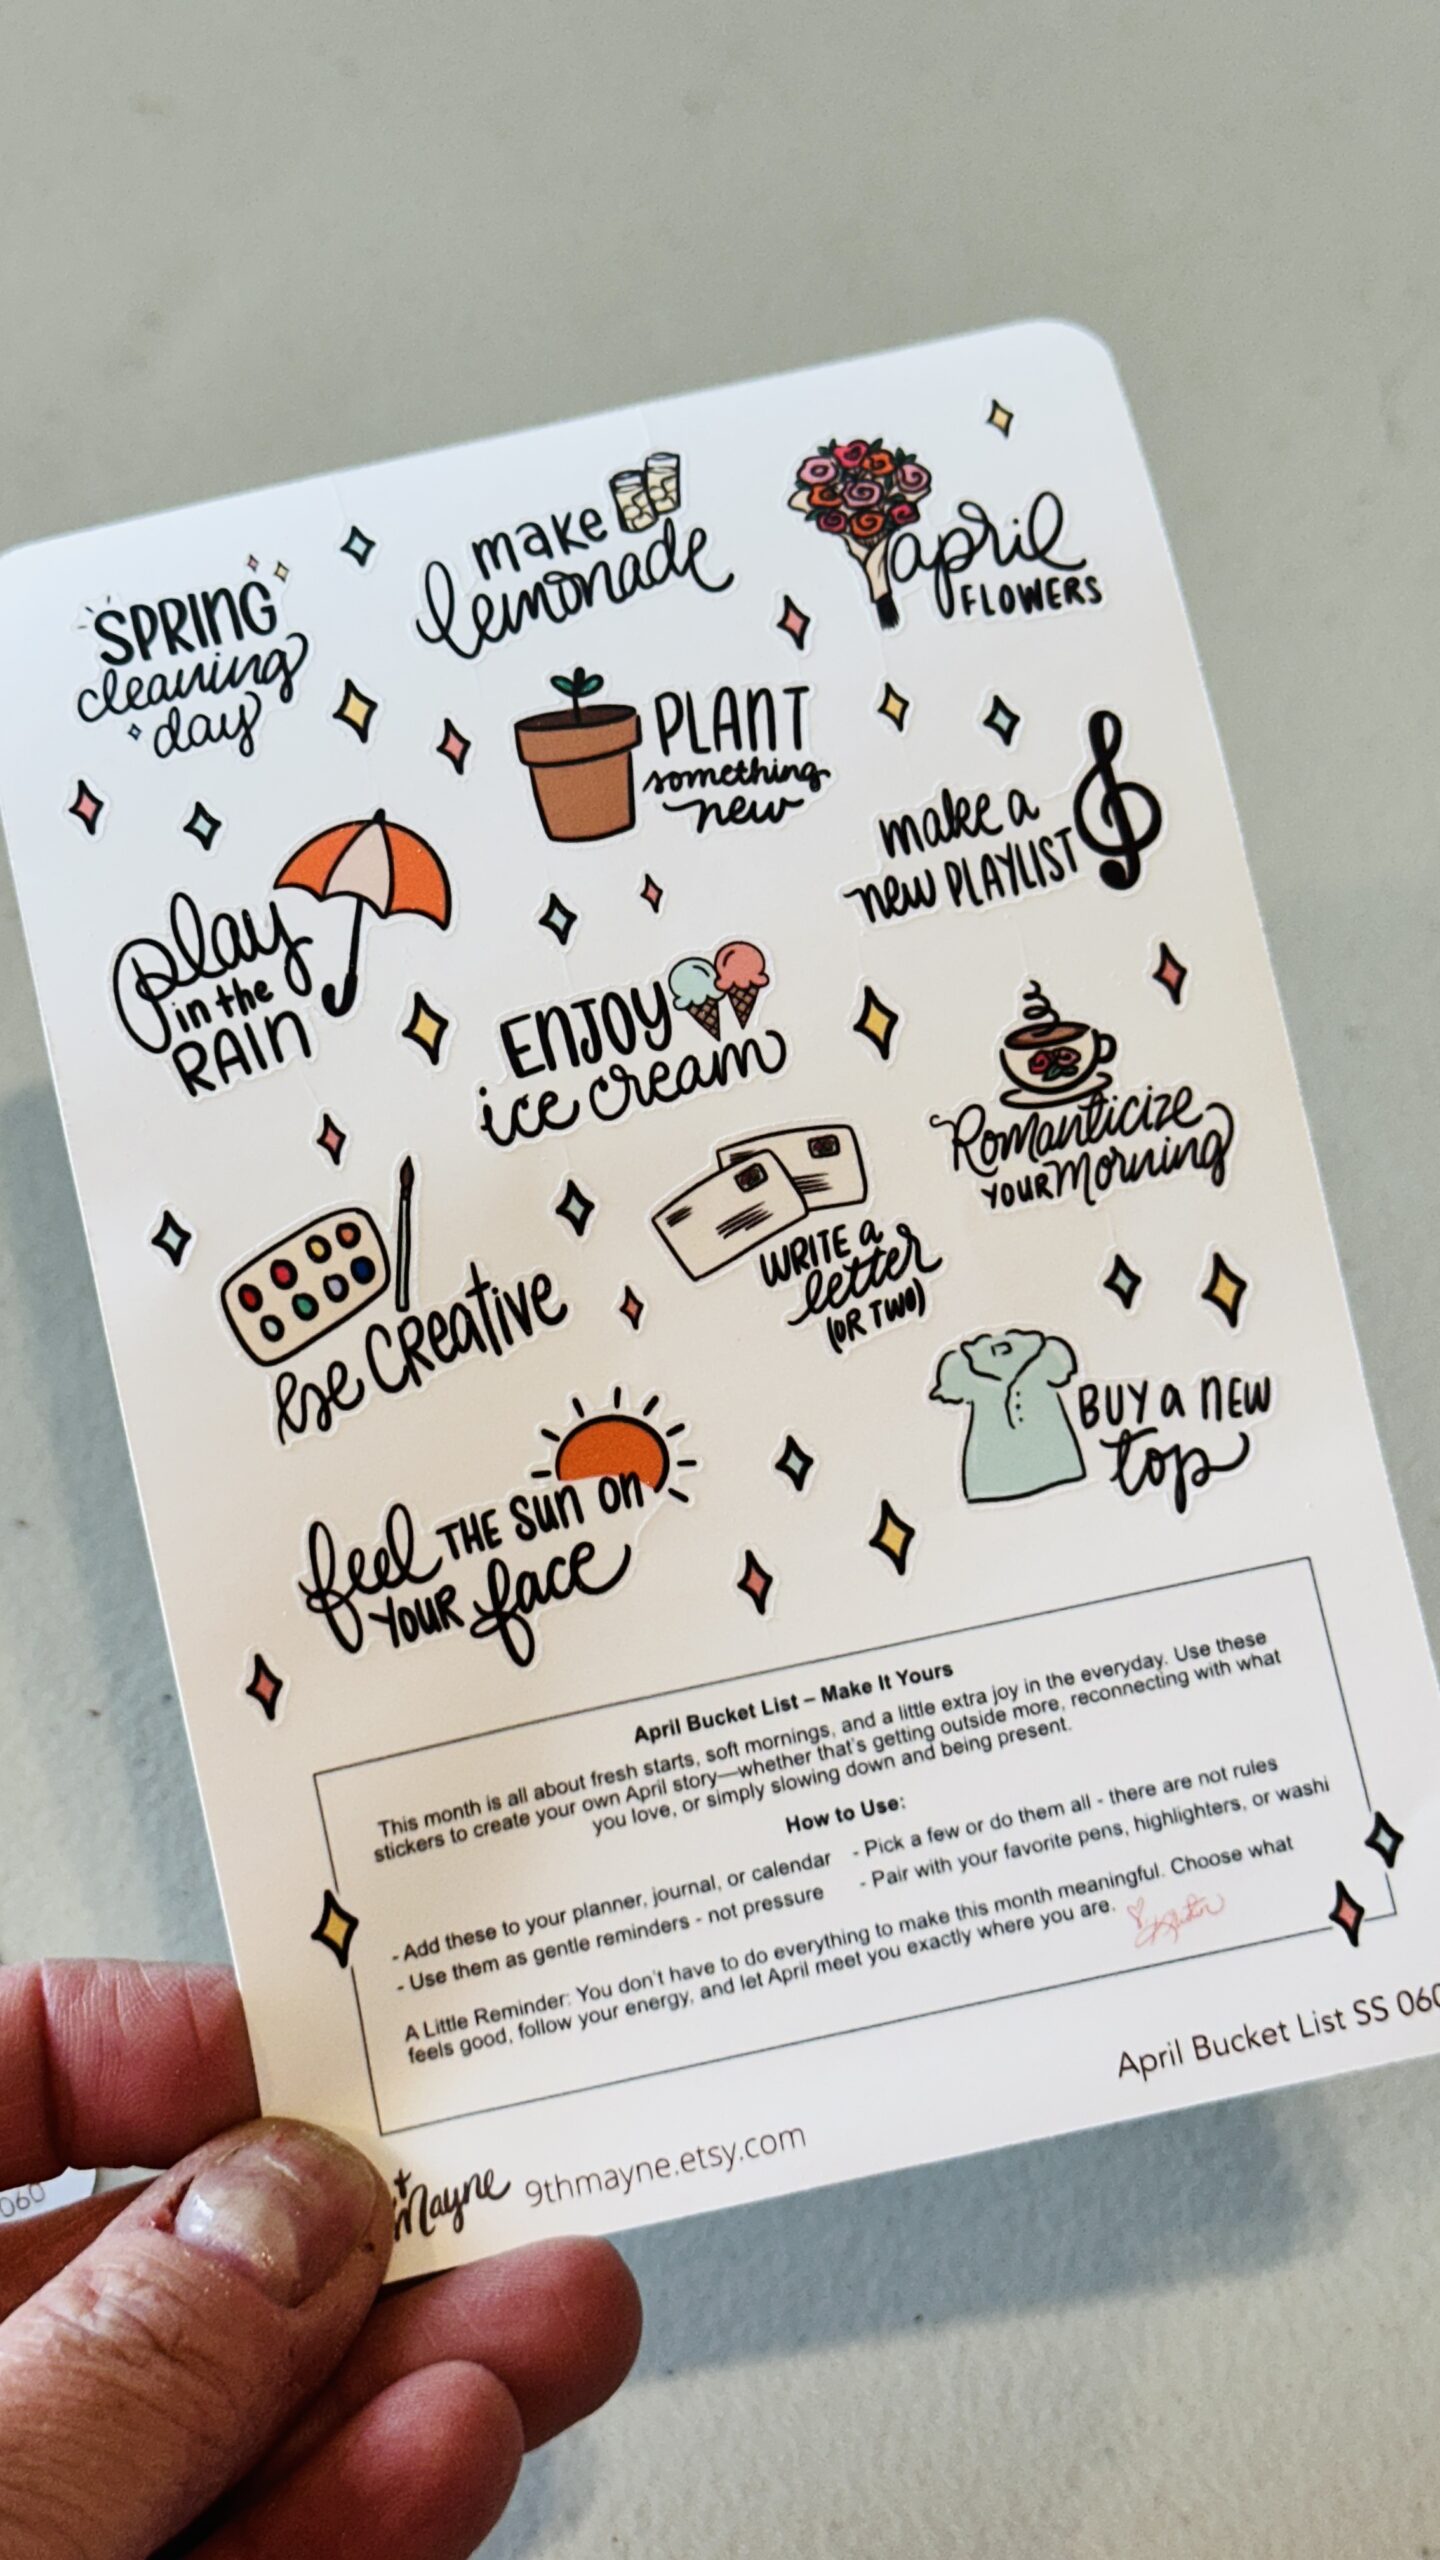 SPRING
cleaning
day
make
lemonade
april
FLOWERS
PLANT
something
new
make a
new PLAYLIST
play
in the
RAIN
ENJOY
ice cream
Romanticize
YOUR Morning
be CReative
WRITE a
letter
(OR TWO)
BUY a NEW
top
feel THE sun on
YOUR face
April Bucket List – Make It Yours
This month is all about fresh starts, soft mornings, and a little extra joy in the everyday. Use these
stickers to create your own April story—whether that's getting outside more, reconnecting with what
you love, or simply slowing down and being present.
How to Use:
- Add these to your planner, journal, or calendar
- Use them as gentle reminders - not pressure
- Pick a few or do them all - there are not rules
- Pair with your favorite pens, highlighters, or washi
A Little Reminder: You don't have to do everything to make this month meaningful. Choose what
feels good, follow your energy, and let April meet you exactly where you are.
April Bucket List SS 060
Mayne
9thmayne.etsy.com
060